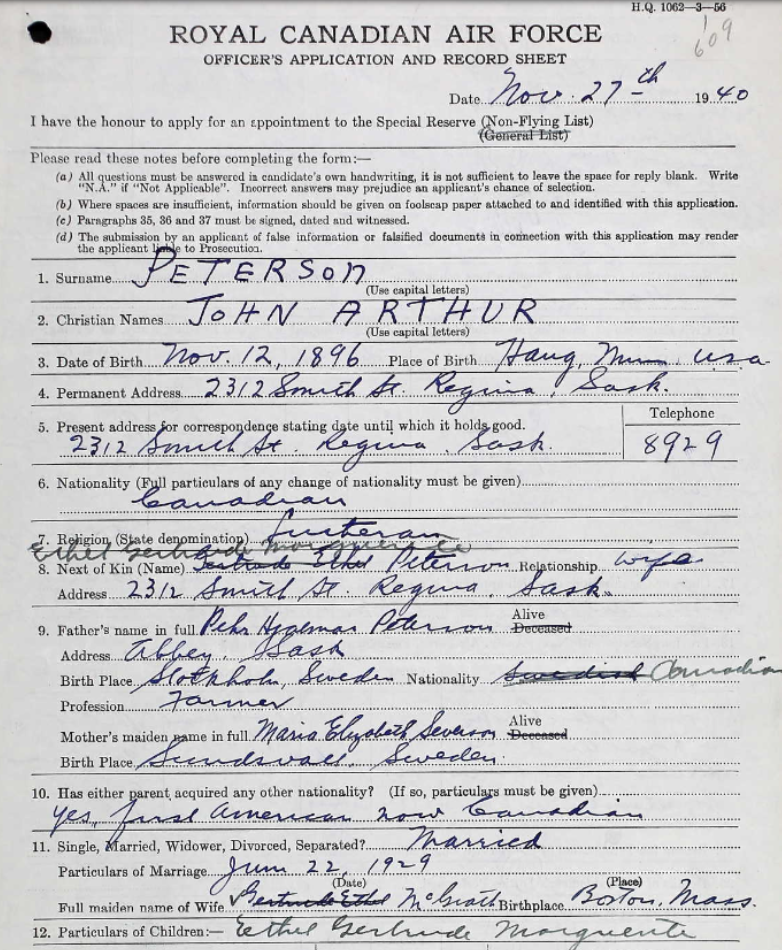 H.Q. 1062—3—56
1
609
ROYAL CANADIAN AIR FORCE
OFFICER'S APPLICATION AND RECORD SHEET
Date Nov. 27th 1940
I have the honour to apply for an appointment to the Special Reserve (Non-Flying List)
(General List)
Please read these notes before completing the form:—
(a) All questions must be answered in candidate's own handwriting, it is not sufficient to leave the space for reply blank. Write
"N.A." if "Not Applicable". Incorrect answers may prejudice an applicant's chance of selection.
(b) Where spaces are insufficient, information should be given on foolscap paper attached to and identified with this application.
(c) Paragraphs 35, 36 and 37 must be signed, dated and witnessed.
(d) The submission by an applicant of false information or falsified documents in connection with this application may render
the applicant liable to Prosecution.
1. Surname PETERSON
(Use capital letters)
2. Christian Names JOHN ARTHUR
(Use capital letters)
3. Date of Birth Nov. 12, 1896 Place of Birth Haug, Minn USA
4. Permanent Address 2312 Smith St. Regina, Sask.
Telephone
5. Present address for correspondence stating date until which it holds good.
2312 Smith St. Regina, Sask. 8929
6. Nationality (Full particulars of any change of nationality must be given)
Canadian
7. Religion (State denomination) Lutheran
Ethel Gertrude Marguerite
8. Next of Kin (Name) Gertrude Ethel Peterson Relationship wife
Address 2312 Smith St. Regina, Sask.
9. Father's name in full Pehr Hjalmar Peterson Alive
Deceased
Address Abbey, Sask
Birth Place Stockholm, Sweden Nationality Swedish Canadian
Profession Farmer
Mother's maiden name in full Maria Elizabeth Severson Alive
Deceased
Birth Place Sundsvall, Sweden.
10. Has either parent acquired any other nationality? (If so, particulars must be given)
Yes, first American now Canadian
11. Single, Married, Widower, Divorced, Separated? Married
Particulars of Marriage June 22, 1929
(Date) (Place)
Full maiden name of Wife Gertrude Ethel McGrath Birthplace Boston, Mass.
12. Particulars of Children:— Ethel Gertrude Marguerite